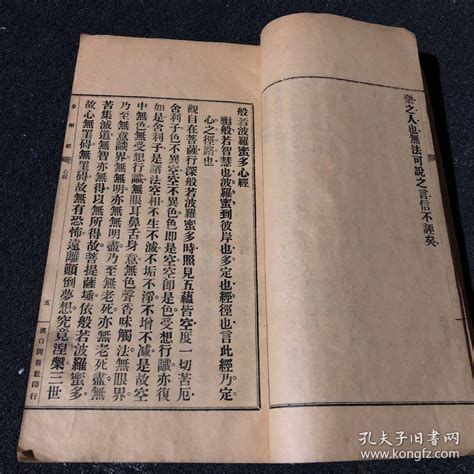 之人也無法可說之言信不誣矣
般若波羅蜜多心經
般若智慧也波羅蜜到彼岸也多定也經徑也言此經乃定
心之徑路也
觀自在菩薩行深般若波羅蜜多時照見五蘊皆空度一切苦厄
舍利子色不異空空不異色色即是空空即是色受想行識亦復
如是舍利子是諸法空相不生不滅不垢不淨不增不減是故空
中無色無受想行識無眼耳鼻舌身意無色聲香味觸法無眼界
乃至無意識界無無明亦無無明盡乃至無老死亦無老死盡無
苦集滅道無智亦無得以無所得故菩提薩埵依般若波羅蜜多
故心無罣碍無罣碍故無有恐怖遠離顛倒夢想究竟涅槃三世
金剛經
心經
五
漢口同善社印行
孔夫子旧书网
www.kongfz.com